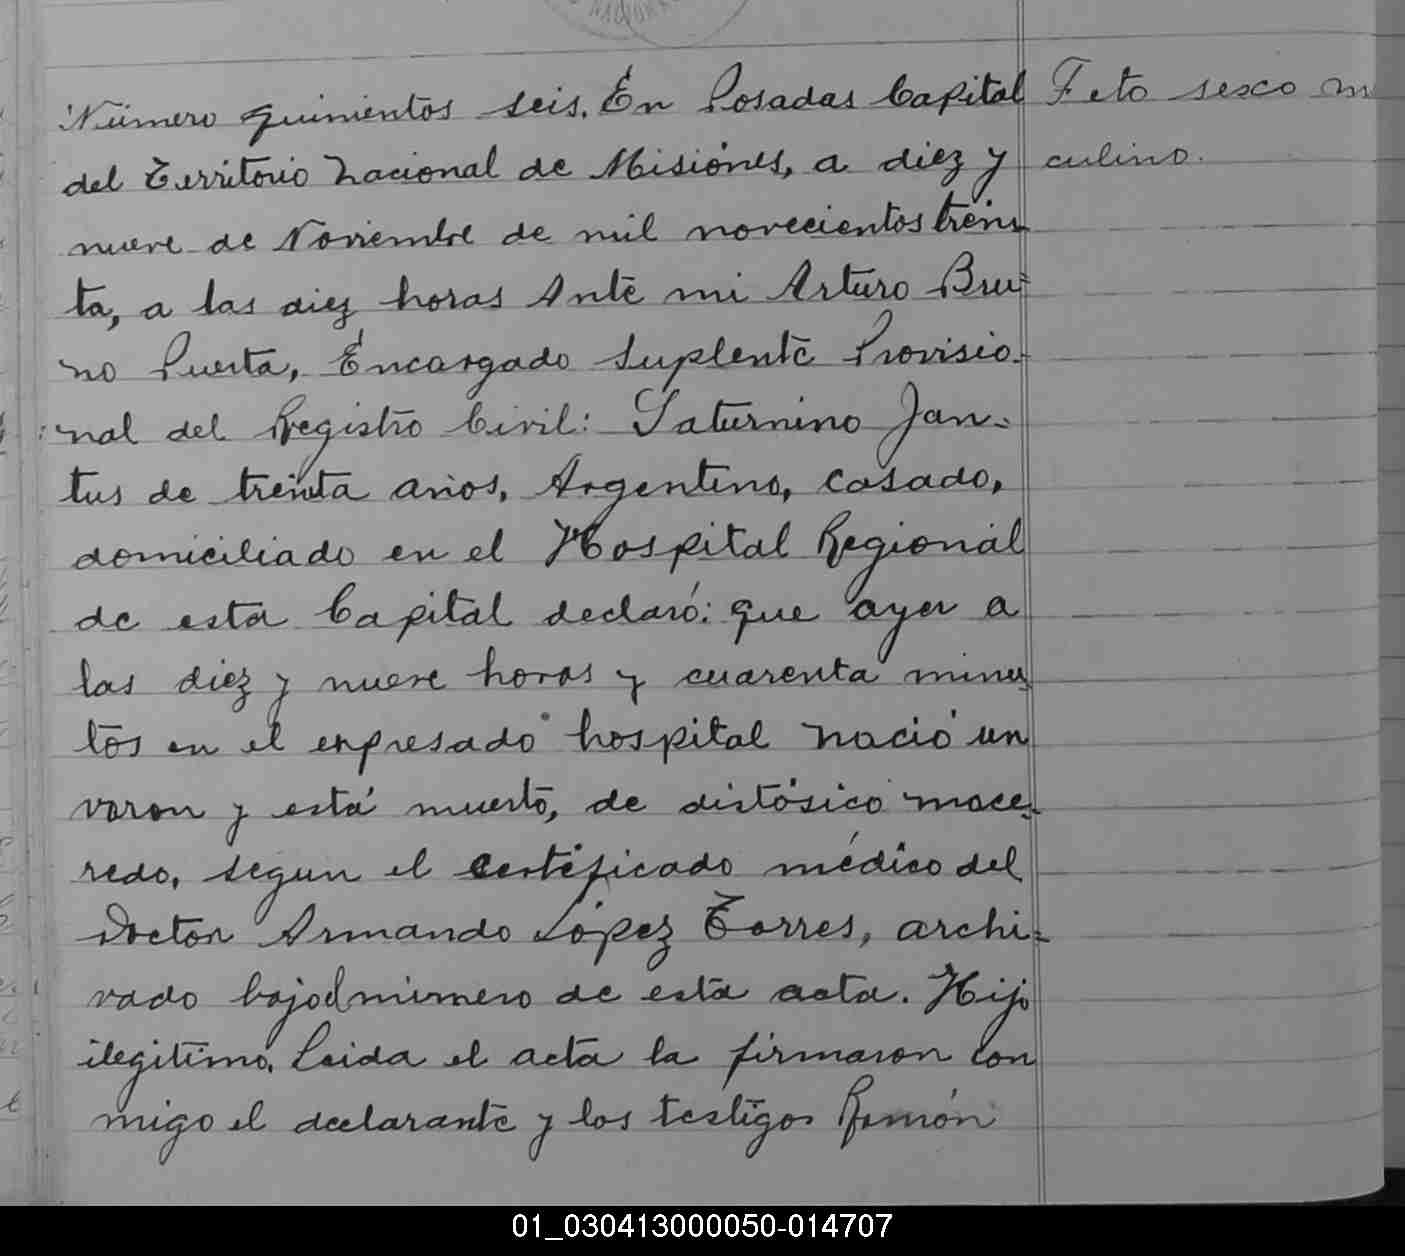 NACIONAL
Número quinientos seis. En Posadas Capital
del Territorio Nacional de Misiónes, a diez y
nueve de Noviembre de mil novecientos trein
ta, a las diez horas Ante mi Arturo Bru-
no Puerta, Encargado Suplente Provisio-
nal del Registro Civil: Saturnino Jan-
tus de treinta años, Argentino, casado,
domiciliado en el Hospital Regional
de esta Capital declaró: que ayer a
las diez y nueve horas y cuarenta minu
tos en el expresado hospital nació un
varon y está muerto, de distósico mace-
redo, segun el certificado médico del
Doctor Armando López Torres, archi-
vado bajo el número de esta acta. Hijo
ilegitimo. Leida el acta la firmaron con
migo el declarante y los testigos Ramón
Feto sexo m
culino.
01_030413000050-014707